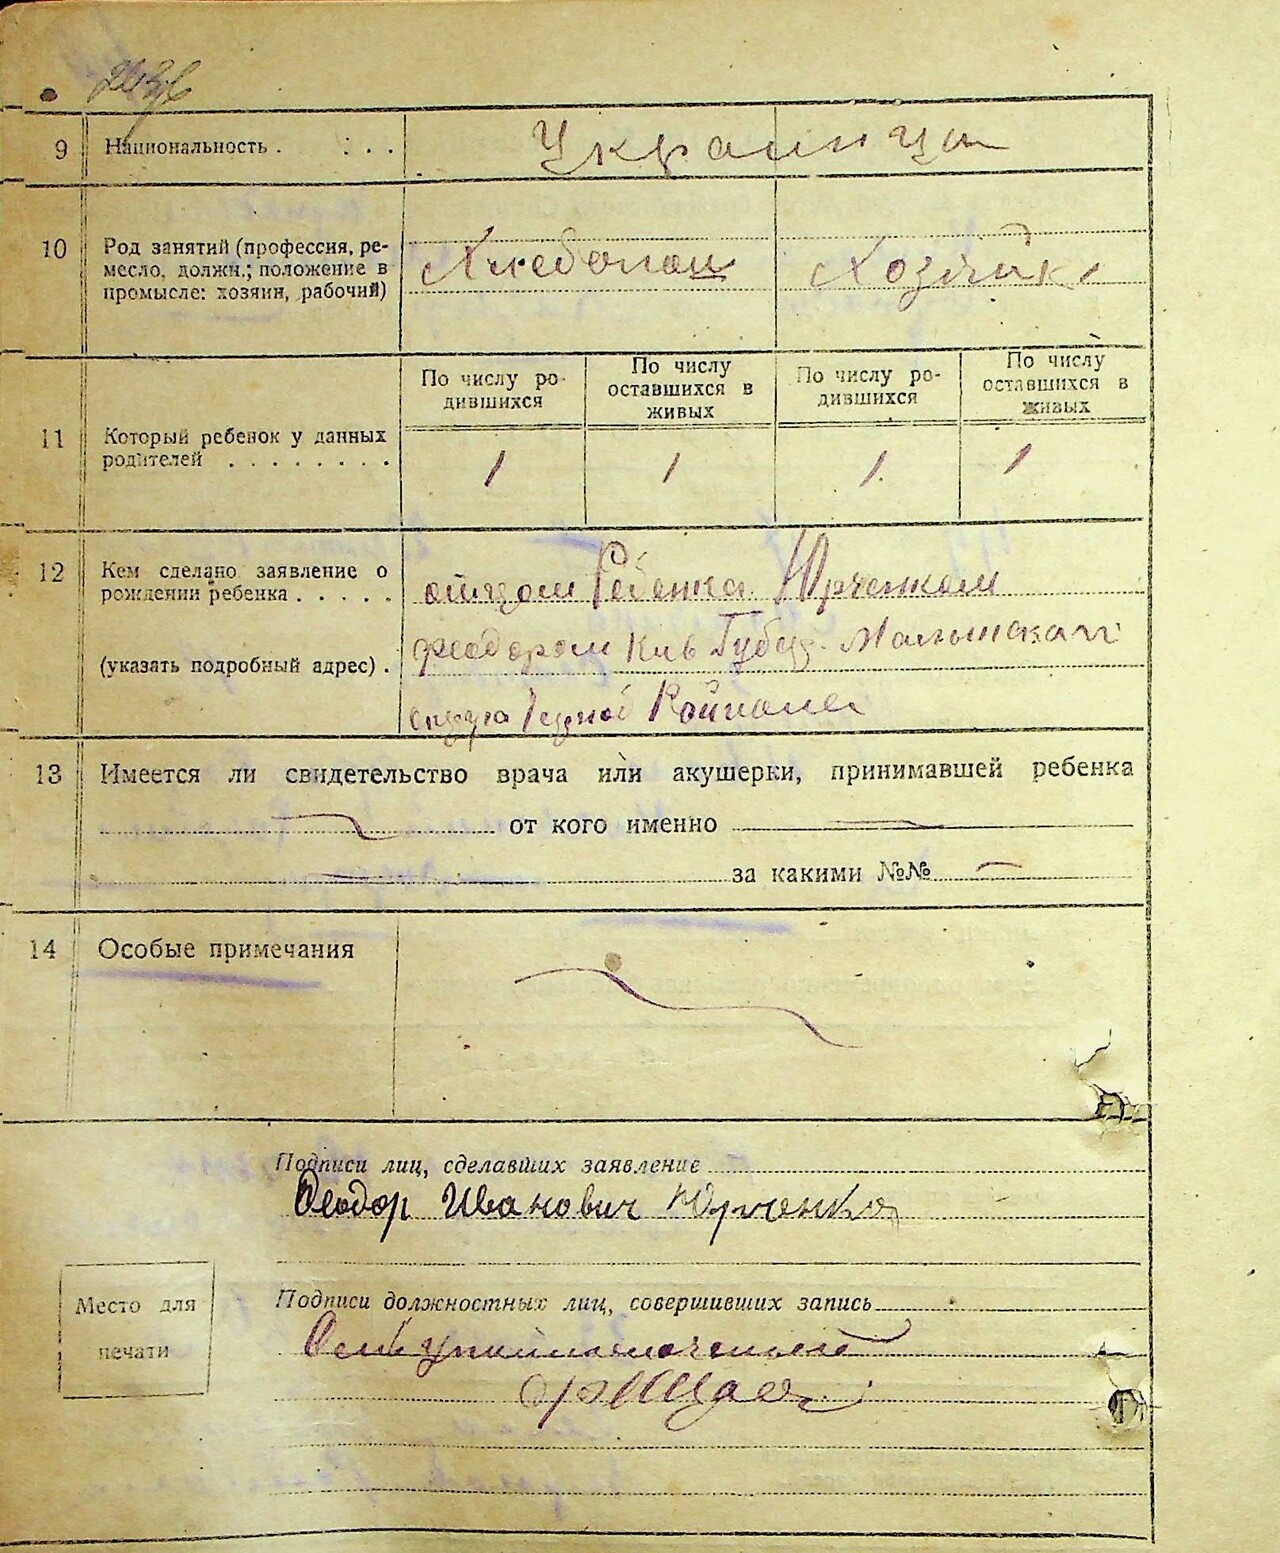 9 Национальность . : . . Украинца
10 Род занятий (профессия, ре-
месло, должн.; положение в
промысле: хозяин, рабочий)
Хлебопаш Хозяйк
11 Который ребенок у данных
родителей . . . . . . . .
По числу ро-
дившихся
По числу
оставшихся в
живых
По числу ро-
дившихся
По числу
оставшихся в
живых
1 1 1 1
12 Кем сделано заявление о
рождении ребенка . . . . .
(указать подробный адрес) .
отцом Ребенка Юрченком
Феодором Киев Губер.
округа
13 Имеется ли свидетельство врача или акушерки, принимавшей ребенка
от кого именно
за какими №№
14 Особые примечания
Подписи лиц, сделавших заявление
Феодор Иванович Юрченко
Место для
печати
Подписи должностных лиц, совершивших запись